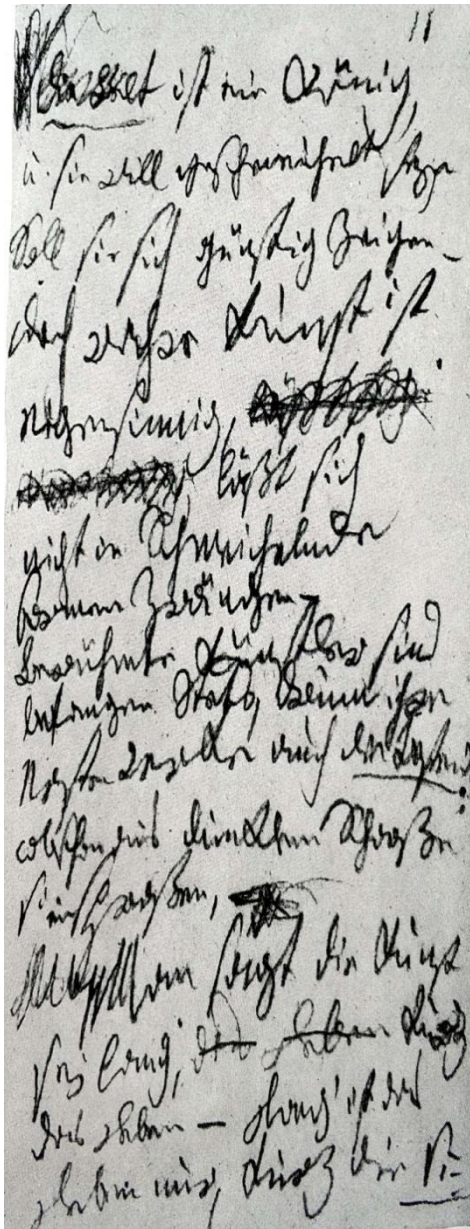 11
die Welt ist ein König,
u. sie will geschmeichelt seyn
Soll sie sich günstig zeigen –
doch wahre Kunst ist
eigensinnig,
läßt sich
nicht in Schmeichelnde
Formen zwängen –
Berühmte Künstler sind
befangen stets, drum ihre
Ersten Werke auch die Besten,
obschon aus dunklem Schooße
sie entsproßen,
Man sagt die Kunst
sey lang, das Leben kurz
das Leben – lang ist das
Leben nur, kurz die